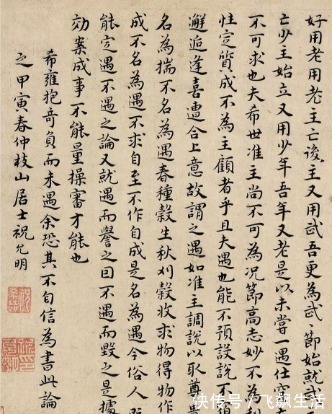 好用老用老主亡後主又用武吾更為武節始就武
亡少主始立又用少年吾年又老是以未嘗一遇仕宦
不可求也夫希世准主尚不可為況節高志妙不為
性定質成不為主顧者乎且夫遇也能不預設說不
邂逅逢喜遭合上意故謂之遇如准主調說以取尊
名為揣不名為遇春種穀生秋刈穀收求物得物作
成不名為遇不求自至不作自成是名為遇今俗人
能定遇不遇之論又就遇而譽之因不遇而毀之是據
効案成事不能量操審才能也
希雍抱奇負而未遇余恐其不自信為書此論
之甲寅春仲枝山居士祝允明
快传号/飞飙生活